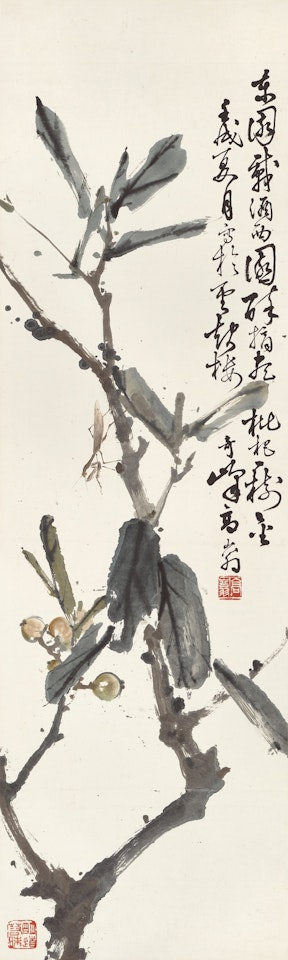 東園載酒西園醉摘盡枇杷一樹金
壬戌夏月寫於雲起樓
奇峰高嵡